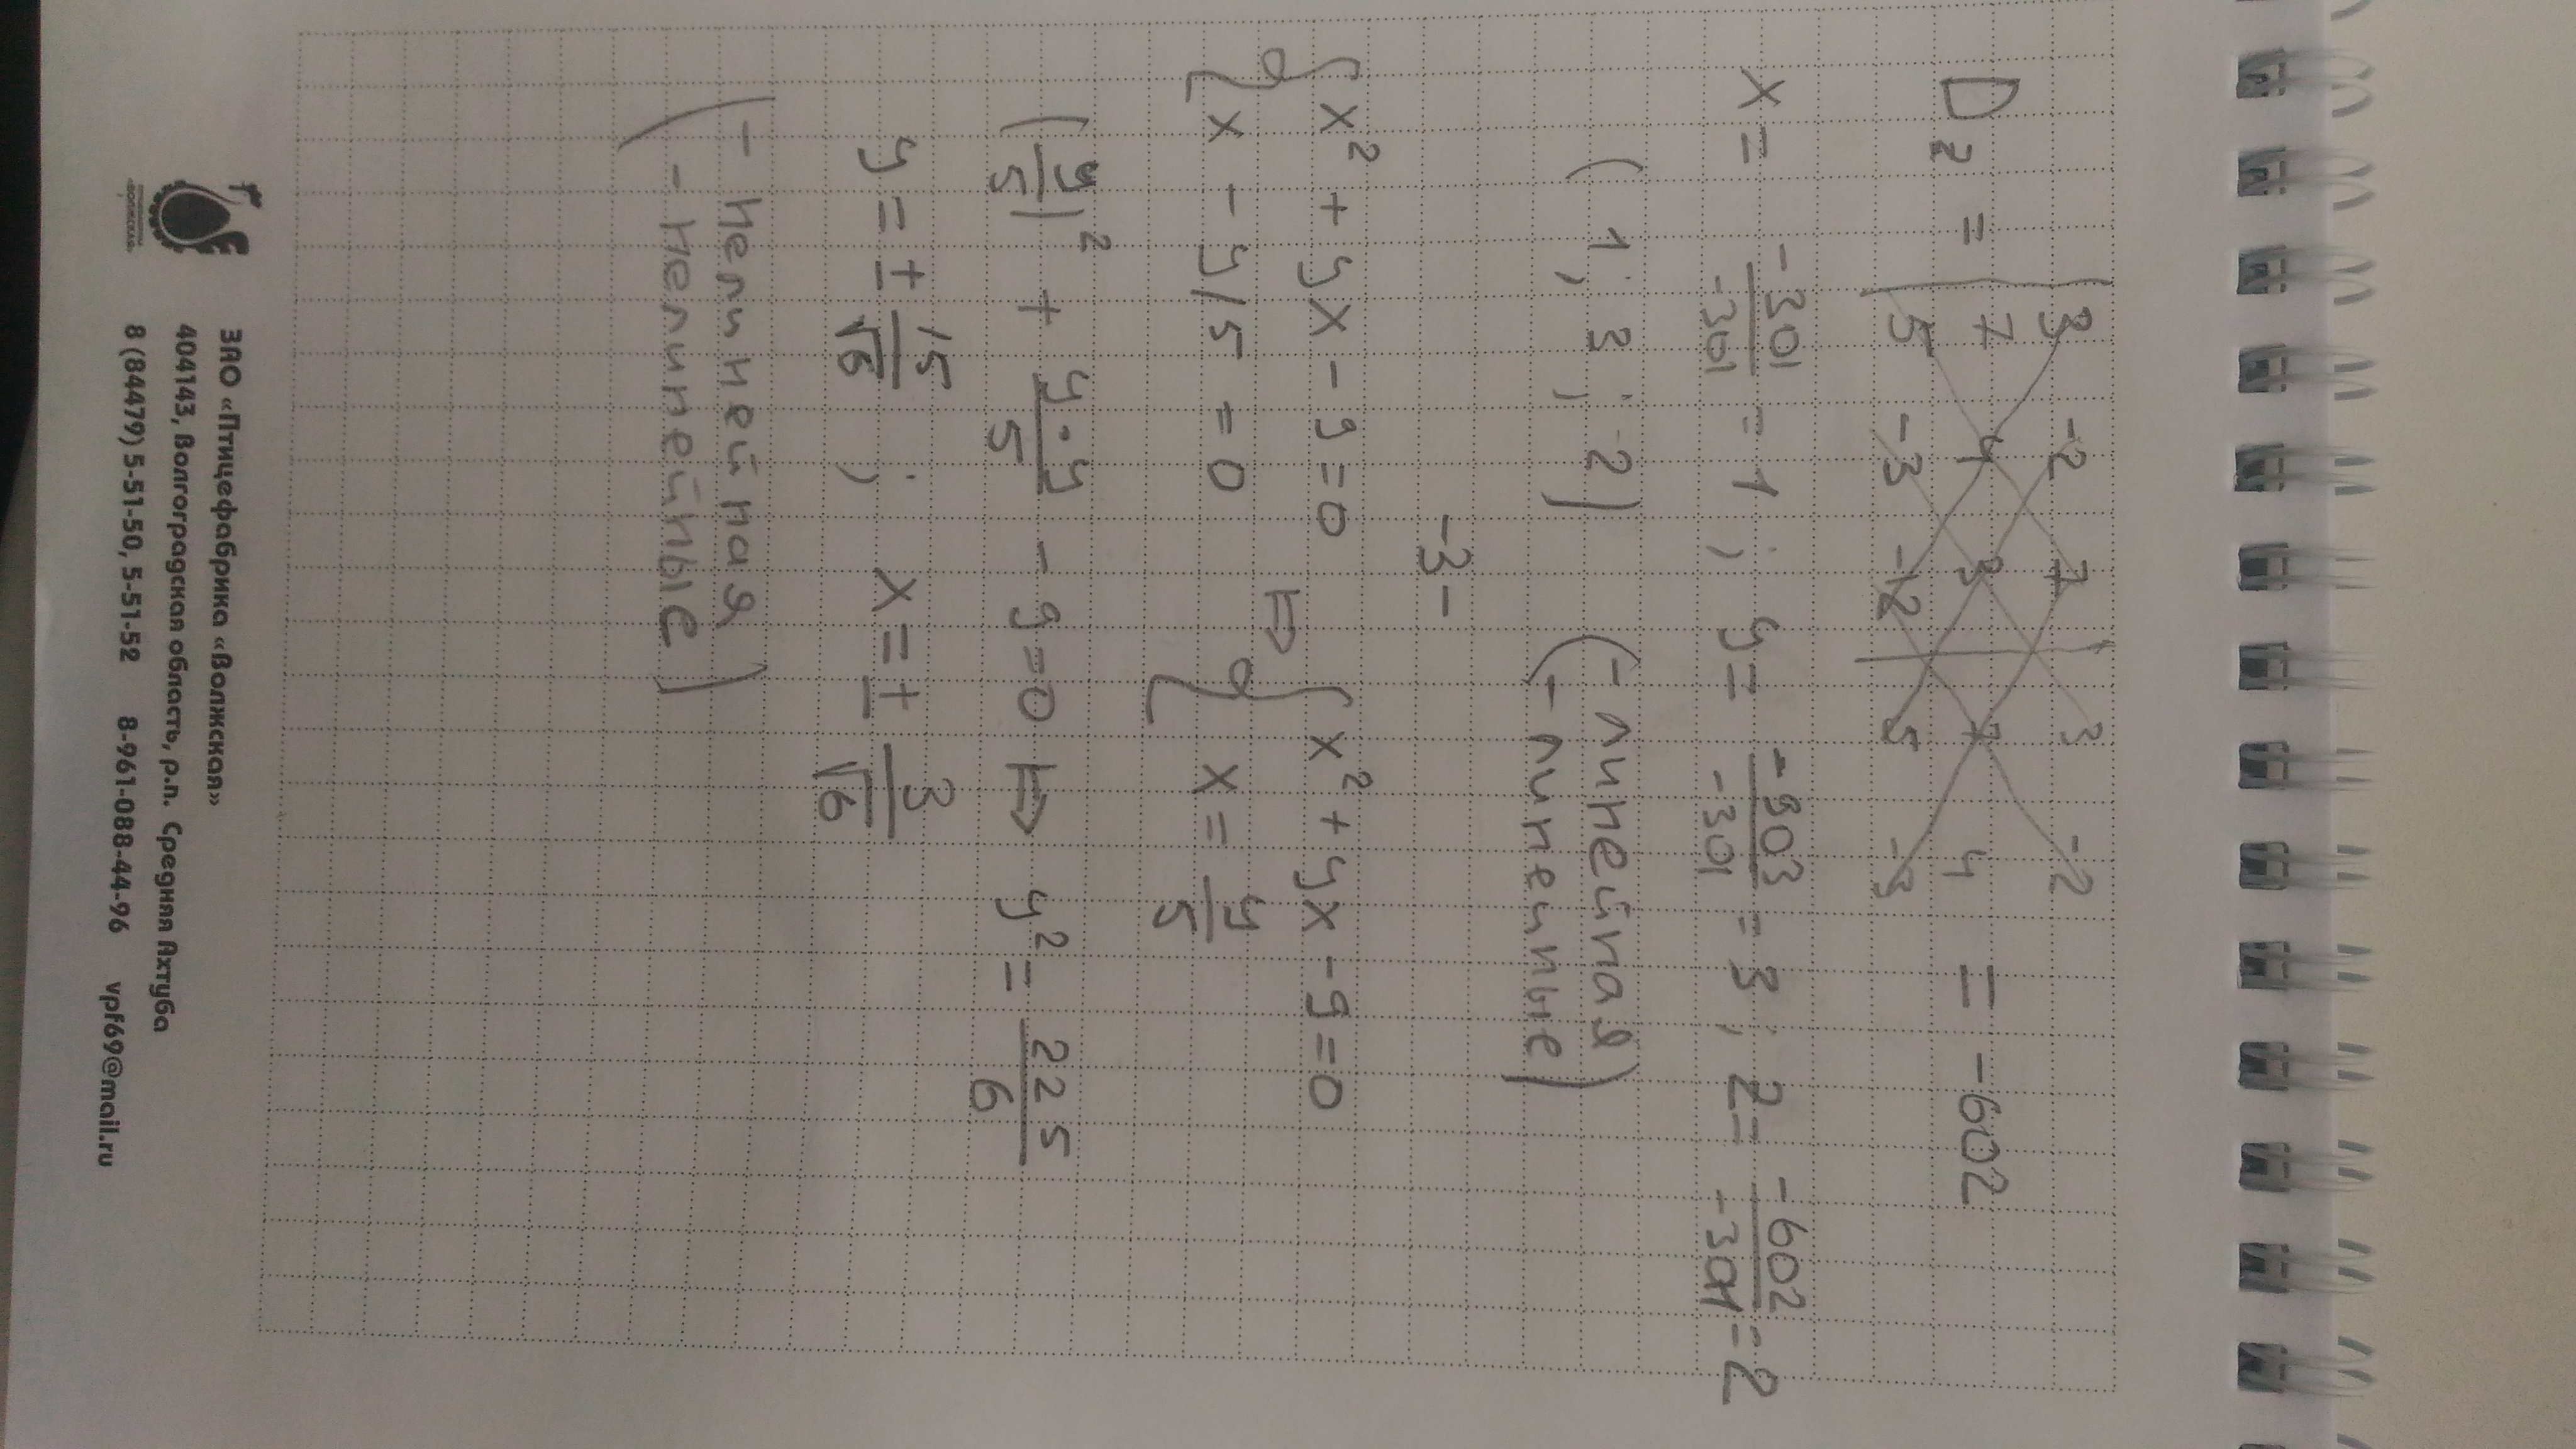 D₂ = | 3 -2 7 | 3 -2
7 4 3 | 7 4 = -602
5 -3 -12 | 5 -3
x = -301/-301 = 1 ; y = -903/-301 = 3 ; 2 = -602/-301 = 2
(1 ; 3 ; 2) (- линейная
- линейные)
-3-
{ x² + yx - 9 = 0 ⇔ { x² + yx - 9 = 0
x - y/5 = 0 x = y/5
(y/5)² + y·y/5 - 9 = 0 ⇔ y² = 225/6
y = ± 15/√6 ; x = ± 3/√6
(- нелинейная
- нелинейные)
ЗАО «Птицефабрика «Волжская»
404143, Волгоградская область, р.п. Средняя Ахтуба
8 (84479) 5-51-50, 5-51-52 8-961-088-44-96 vpf69@mail.ru